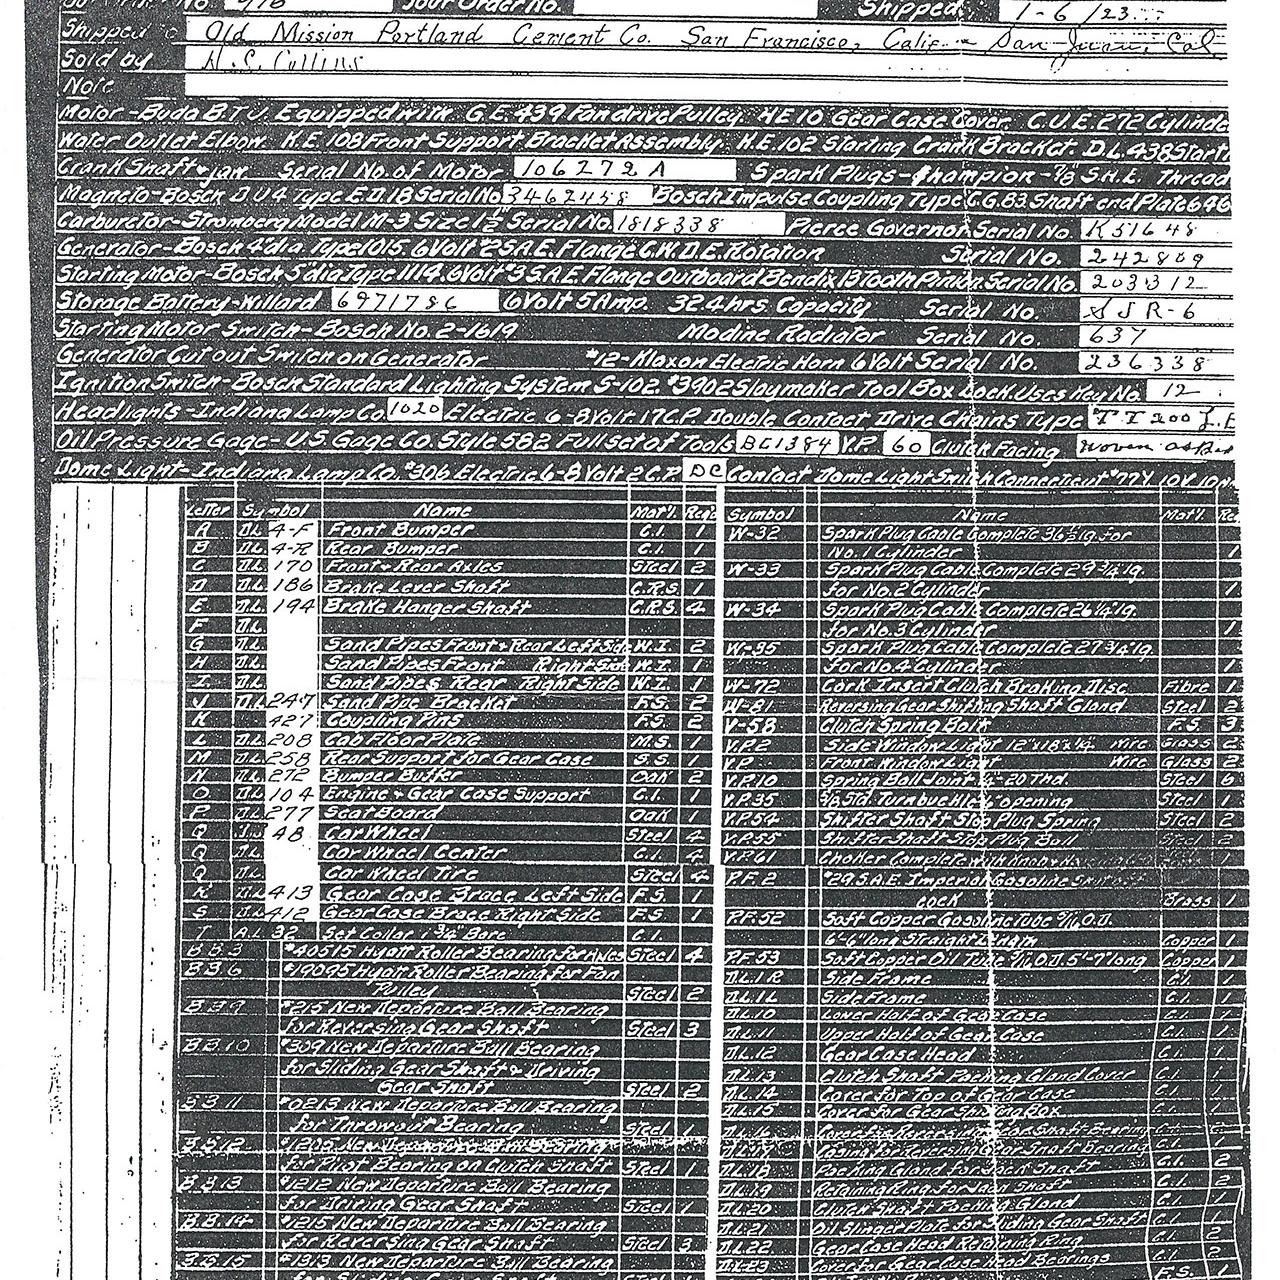 No. 976 Your Order No. Shipped 1-6/23
Shipped to Old Mission Portland Cement Co. San Francisco, Calif. - San Juan, Cal
Sold by H.S. Collins
Note
Motor-Buda B.T.U. Equipped with G.E. 439 Fan drive Pulley HE 10 Gear Case Cover C.U.E. 272 Cylinde
Water Outlet Elbow. K.E. 108 Front Support Bracket Assembly. K.E. 102 Starting Crank Bracket. D.L. 438 Starti
Crank Shaft & jaw Serial No. of Motor 106272A Spark Plugs-Champion-7/8 S.A.E. Thread
Magneto-Bosch DU4 Type ED18 Serial No 3462458 Bosch Impulse Coupling Type C.G.83 Shaft end Plate 646
Carburetor-Stromberg Model M-3 Size 1½ Serial No. 1818338 Pierce Governor Serial No. K51648
Generator-Bosch 4"dia Type 1015 6Volt #2 S.A.E. Flange C.W.D.E. Rotation Serial No. 242809
Starting Motor-Bosch 5 dia Type 1114. 6Volt #3 S.A.E. Flange Outboard Bendix 13 Tooth Pinion Serial No. 203312
Storage Battery-Willard 6971786 6Volt 5Amp. 32.4 hrs. Capacity Serial No. SJR-6
Starting Motor Switch-Bosch No. 2-1619 Modine Radiator Serial No. 637
Generator Cut out Switch on Generator #12-Klaxon Electric Horn 6Volt Serial No. 236338
Ignition Switch-Bosch Standard Lighting System S-102. #3902 Slaymaker Tool Box Lock. Uses Key No. 12
Headlights-Indiana Lamp Co. 1020 Electric 6-8Volt 17C.P. Double Contact Drive Chains Type TT200 L.E
Oil Pressure Gage-U.S. Gage Co. Style 582 Full set of Tools BC1384 V.P. 60 Clutch Facing Woven
Dome Light-Indiana Lamp Co. #306 Electric 6-8Volt 2C.P. DC Contact Dome Light Switch Connecticut #77Y 10V 10
Letter Symbol Name Mat'l. Req'd Symbol Name Mat'l. Re
A D.L. 4-F Front Bumper C.I. 1 W-32 Spark Plug Cable Complete 36½" lg. for
B D.L. 4-R Rear Bumper C.I. 1 No. 1 Cylinder 1
C D.L. 170 Front & Rear Axles Steel 2 W-33 Spark Plug Cable Complete 29¾" lg.
D D.L. 186 Brake Lever Shaft C.R.S. 1 for No. 2 Cylinder 1
E D.L. 194 Brake Hanger Shaft C.R.S. 4 W-34 Spark Plug Cable Complete 26¼" lg.
F D.L. for No. 3 Cylinder 1
G D.L. Sand Pipes Front & Rear Left Side W.I. 2 W-35 Spark Plug Cable Complete 27¾" lg.
H D.L. Sand Pipes Front Right Side W.I. 1 for No. 4 Cylinder 1
I D.L. Sand Pipes Rear Right Side W.I. 1 W-72 Cork Insert Clutch Braking Disc Fibre 1
J D.L. 247 Sand Pipe Bracket F.S. 2 W-81 Reversing Gear Shifting Shaft Gland Steel 2
K 427 Coupling Pins F.S. 2 V-58 Clutch Spring Bolt F.S. 3
L D.L. 208 Cab Floor Plate M.S. 1 V.P.2 Side Window Light 12"x18"x¼" Wire Glass 2
M D.L. 258 Rear Support for Gear Case S.S. 1 V.P Front Window Light Wire Glass 2
N D.L. 272 Bumper Buffer Oak 2 V.P.10 Spring Ball Joint ¼-20 Thd. Steel 6
O D.L. 104 Engine & Gear Case Support C.I. 1 V.P.35 Std. Turnbuckle opening Steel 1
P D.L. 277 Seat Board Oak 1 V.P.54 Shifter Shaft Stop Plug Spring Steel 2
Q 48 Car Wheel Steel 4 V.P.55 Shifter Shaft Stop Plug Ball Steel 2
Q D.L. Car Wheel Center C.I. 4 V.P.61 Choker Complete with Knob 1
Q D.L. Car Wheel Tire Steel 4 P.F.2 #29 S.A.E. Imperial Gasoline
R D.L. 413 Gear Case Brace Left Side F.S. 1 Cock Brass 1
S D.L. 412 Gear Case Brace Right Side F.S. 1 P.F.52 Soft Copper Gasoline Tube 5/16 O.D.
T A.L. 32 Set Collar 1¾" Bore C.I. 6'-6" long Straight Length Copper 1
B.B.3 #40515 Hyatt Roller Bearing for Axles Steel 4 P.F.53 Soft Copper Oil Tube 5/16 O.D. 5'-7" long Copper 1
B.B.6 #19095 Hyatt Roller Bearing for Fan D.L.1R Side Frame C.I. 1
Pulley Steel 2 D.L.1L Side Frame C.I. 1
B.B.9 #215 New Departure Ball Bearing D.L.10 Lower Half of Gear Case C.I. 1
for Reversing Gear Shaft Steel 3 D.L.11 Upper Half of Gear Case C.I. 1
B.B.10 #309 New Departure Ball Bearing D.L.12 Gear Case Head C.I. 1
for Sliding Gear Shaft & Driving D.L.13 Clutch Shaft Packing Gland Cover C.I. 1
Gear Shaft Steel 2 D.L.14 Cover for Top of Gear Case C.I. 1
B.B.11 #0213 New Departure Ball Bearing D.L.15 Cover for Gear Shifting Box C.I. 1
for Throwout Bearing Steel 1 D.L.16 Cover for Reversing Shaft Bearing
B.B.12 #1205 New Departure Ball Bearing Casing for Reversing Gear Shaft Bearing C.I. 2
for Pilot Bearing on Clutch Shaft Steel 1 D.L.18 Packing Gland for Jack Shaft C.I. 2
B.B.13 #1212 New Departure Ball Bearing D.L.19 Retaining Ring for Jack Shaft C.I. 2
for Driving Gear Shaft Steel 1 D.L.20 Clutch Shaft Packing Gland C.I. 1
B.B.14 #1215 New Departure Ball Bearing D.L.21 Oil Slinger Plate for Sliding Gear Shaft C.I.
for Reversing Gear Shaft Steel 3 D.L.22 Gear Case Head Retaining Ring C.I. 2
B.B.15 #1313 New Departure Ball Bearing D.L.23 Cover for Gear Case Head Bearings C.I. 2
for Sliding Gear Shaft Steel 1 F.S. 1